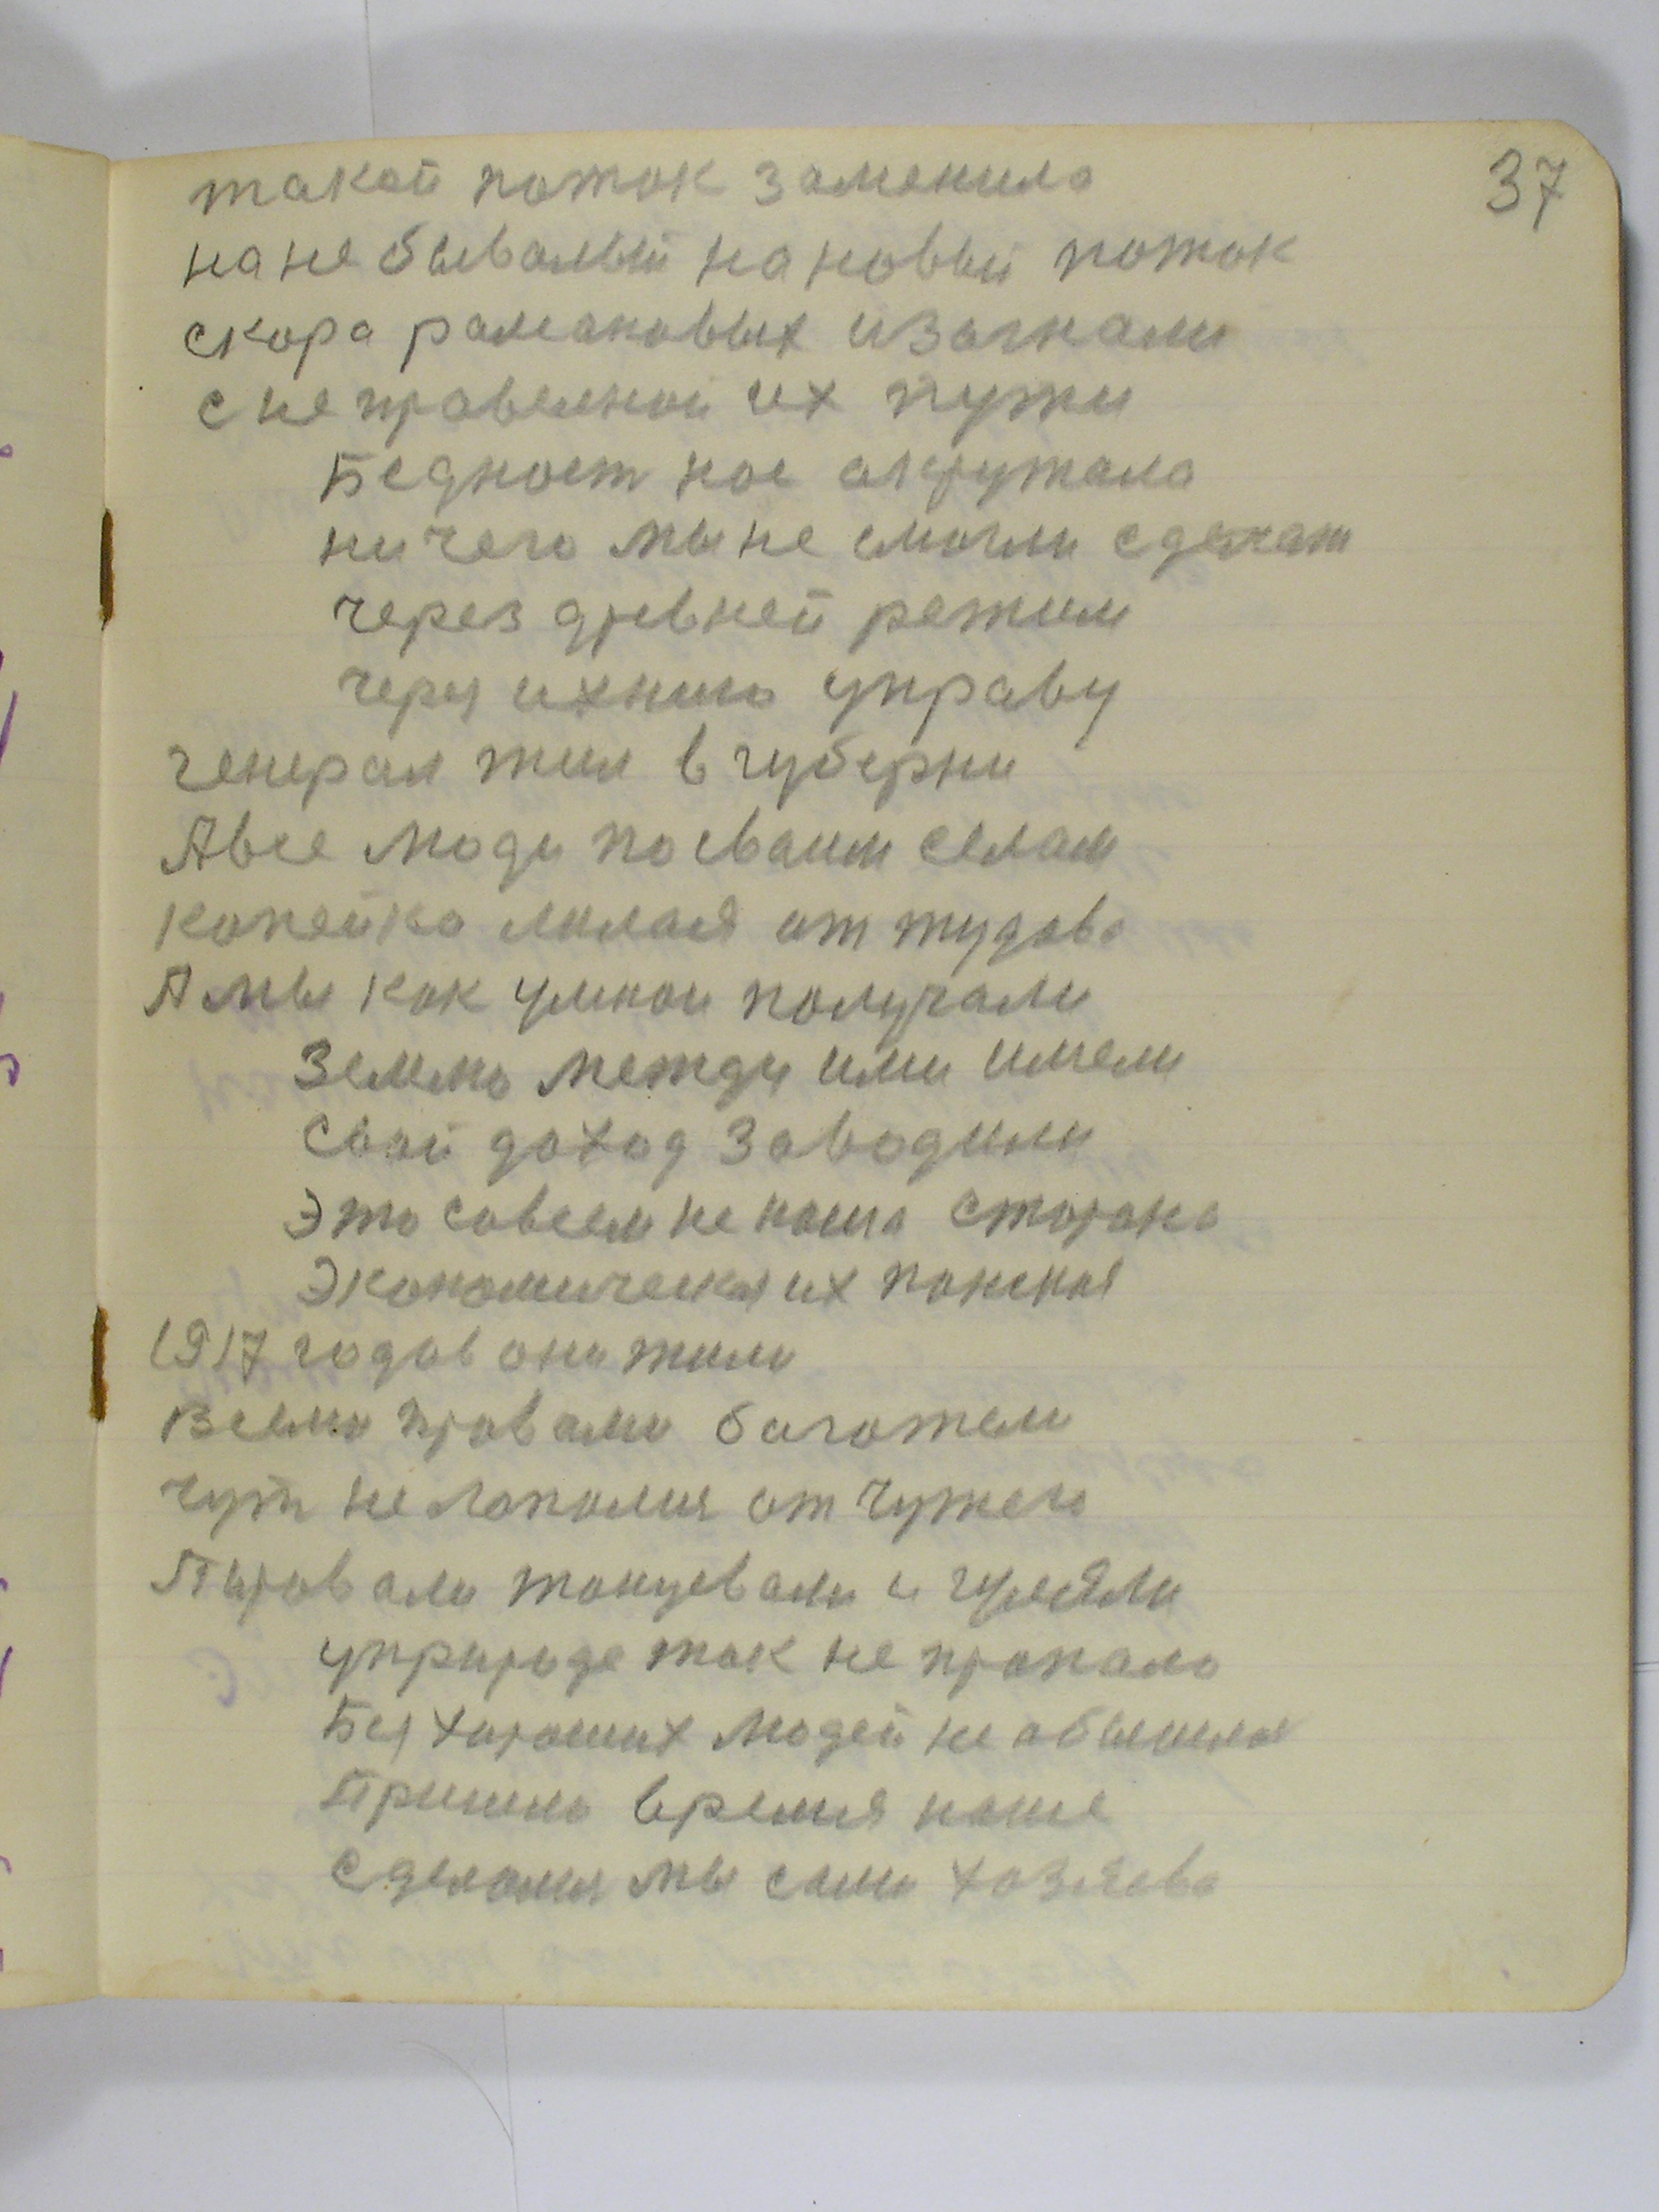 37
такой поток заменила
на не бывалый на новый поток
скора рамановых изагнали
с не правелной их пути
Бедност нас акружала
ни чего мы не смогли сделат
через древней режим
через ихнию управу
генерал жил в губерни
А все люди по сваим селам
копейка милая от тудова
А мы как умнои получали
Землю между ими имели
свой доход заводили
Это совсем не наша старана
Экономическия их
1917 годов они жили
Всеми правами багатели
чут не лопалис от чужего
Пировали танцевали и гуляли
у природе так не пропала
Без хароших людей не абышлас
Пришло время наше
сделалис мы сами хозяева